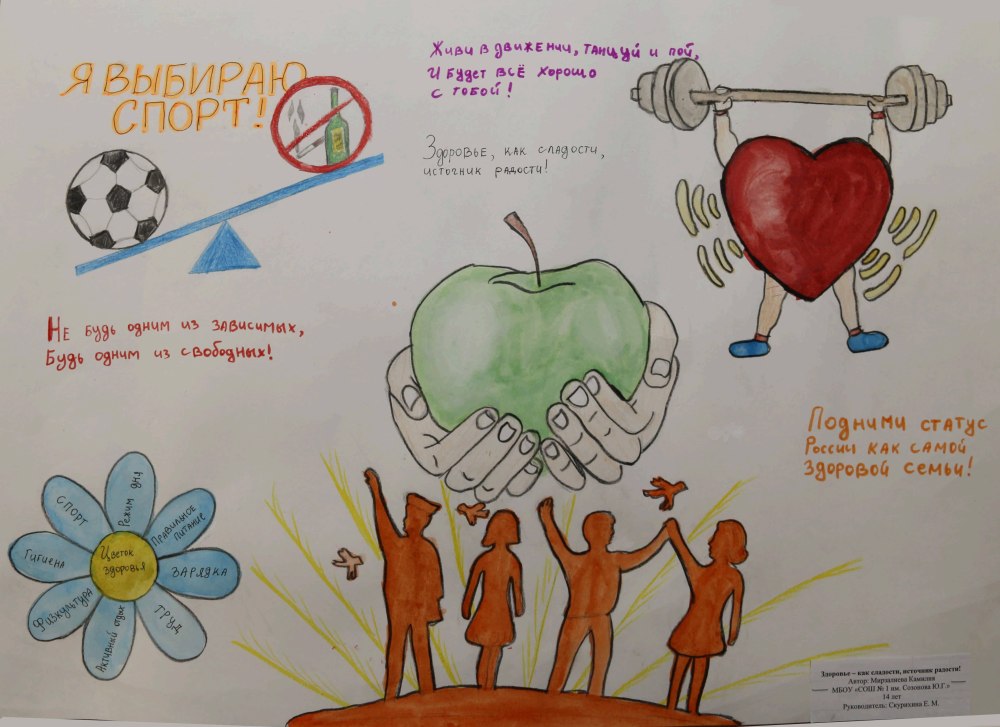 Я ВЫБИРАЮ
СПОРТ!
Живи в движении, танцуй и пой,
И будет всё хорошо
с тобой!
Здоровье, как сладости,
источник радости!
Не будь одним из зависимых,
Будь одним из свободных!
Подними статус
России как самой
здоровой семьи!
Цветок
здоровья
Режим дня
Правильное
питание
ЗАРЯДКА
ТРУД
Активный отдых
Физкультура
Гигиена
СПОРТ
Здоровье – как сладости, источник радости!
Автор: Мирзалиева Камилия
МБОУ «СОШ № 1 им. Созонова Ю.Г.»
14 лет
Руководитель: Скурихина Е. М.